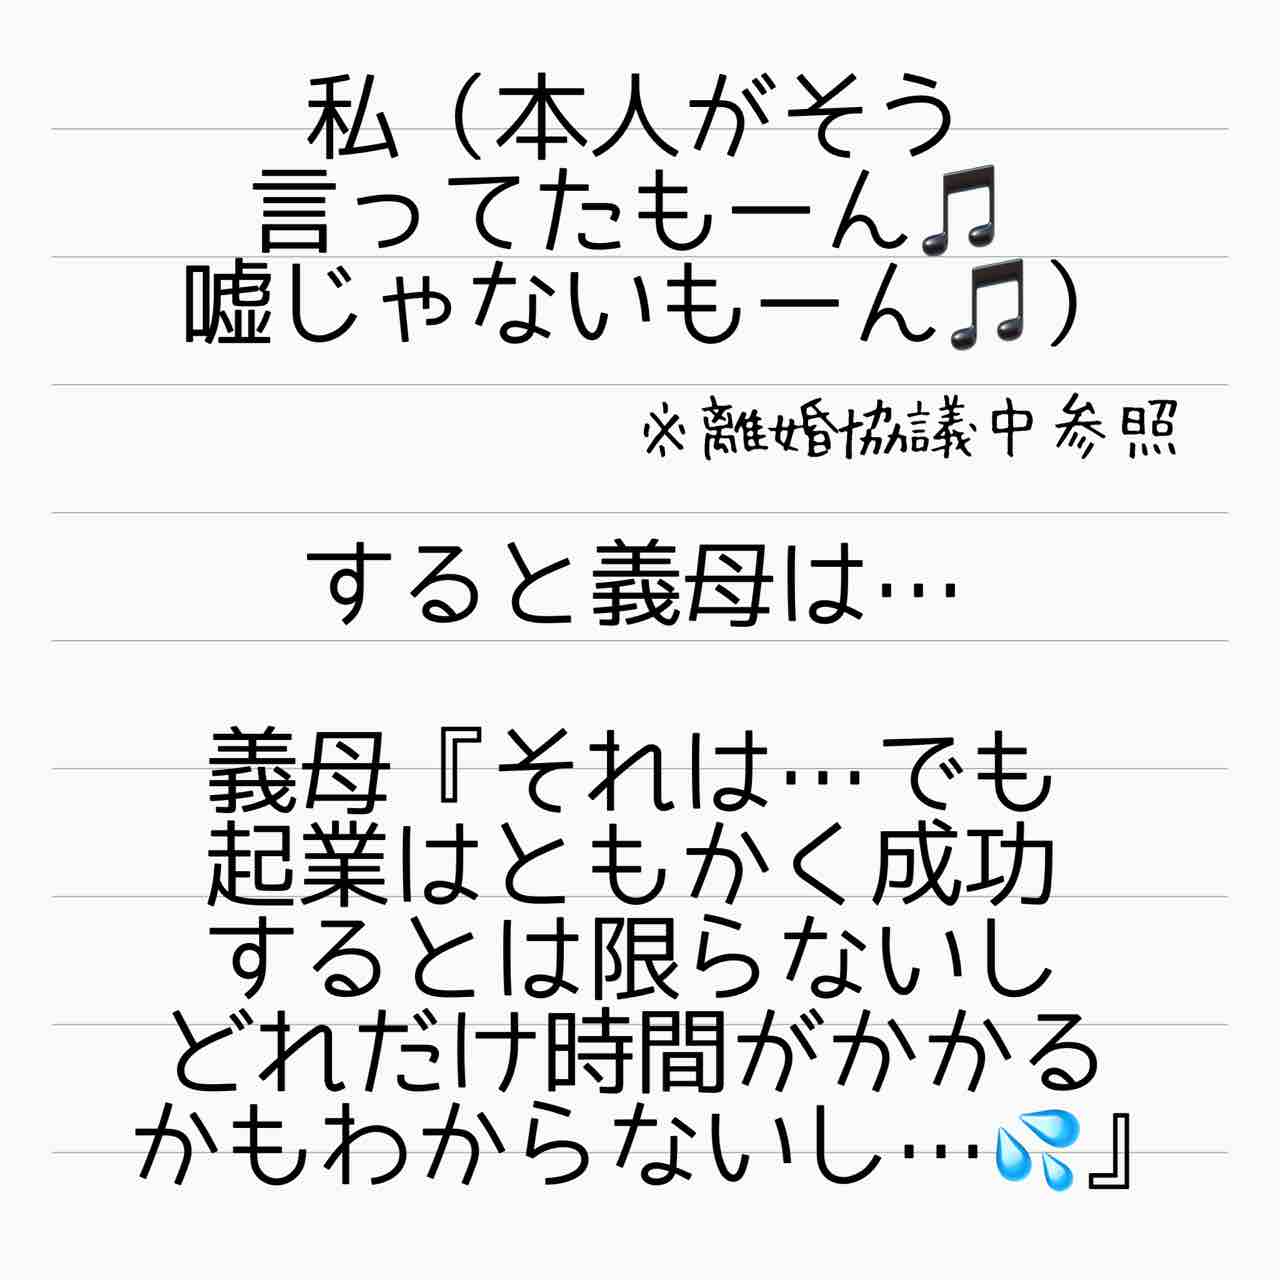 私（本人がそう
言ってたもーん🎵
嘘じゃないもーん🎵）
※離婚協議中参照
すると義母は…
義母『それは…でも
起業はともかく成功
するとは限らないし
どれだけ時間がかかる
かもわからないし…💦』